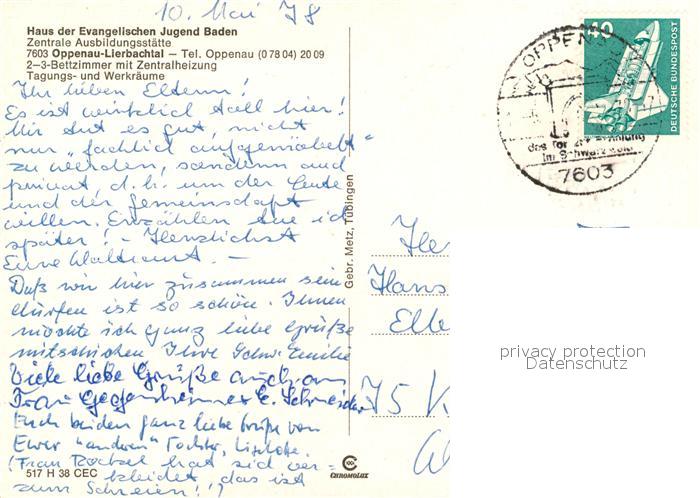 10. Mai 78
Haus der Evangelischen Jugend Baden
Zentrale Ausbildungsstätte
7603 Oppenau-Lierbachtal — Tel. Oppenau (0 78 04) 20 09
2—3-Bettzimmer mit Zentralheizung
Tagungs- und Werkräume
Ihr lieben Eltern!
Es ist wirklich toll hier!
Mir tut es gut, nicht
nur "fachlich aufgemöbelt"
zu werden, sondern auch
privat, d.h. um der Leute
und der Gemeinschaft
willen. Erzählen tue ich
später! - Herzlichst
Eure Waltraut. -
Daß wir hier zusammen sein
dürfen ist so schön. Ihnen
möchte ich ganz liebe Grüße
mitschicken Ihre Schw. Emilie
Viele liebe Grüße auch an
Frau Gegenheimer E. Schneider
Euch beiden ganz liebe Grüße von
Eurer "anderen" Tochter, Liselotte.
(Frau hat sich ver-
kleidet, das ist
zum Schreien!!)
517 H 38 CEC
CHROMOLUX
Gebr. Metz, Tübingen
40
DEUTSCHE BUNDESPOST
OPPENAU
das Tor zur
im Schwarzwald
7603
Her
Hans
Elle
75 K
privacy protection
Datenschutz